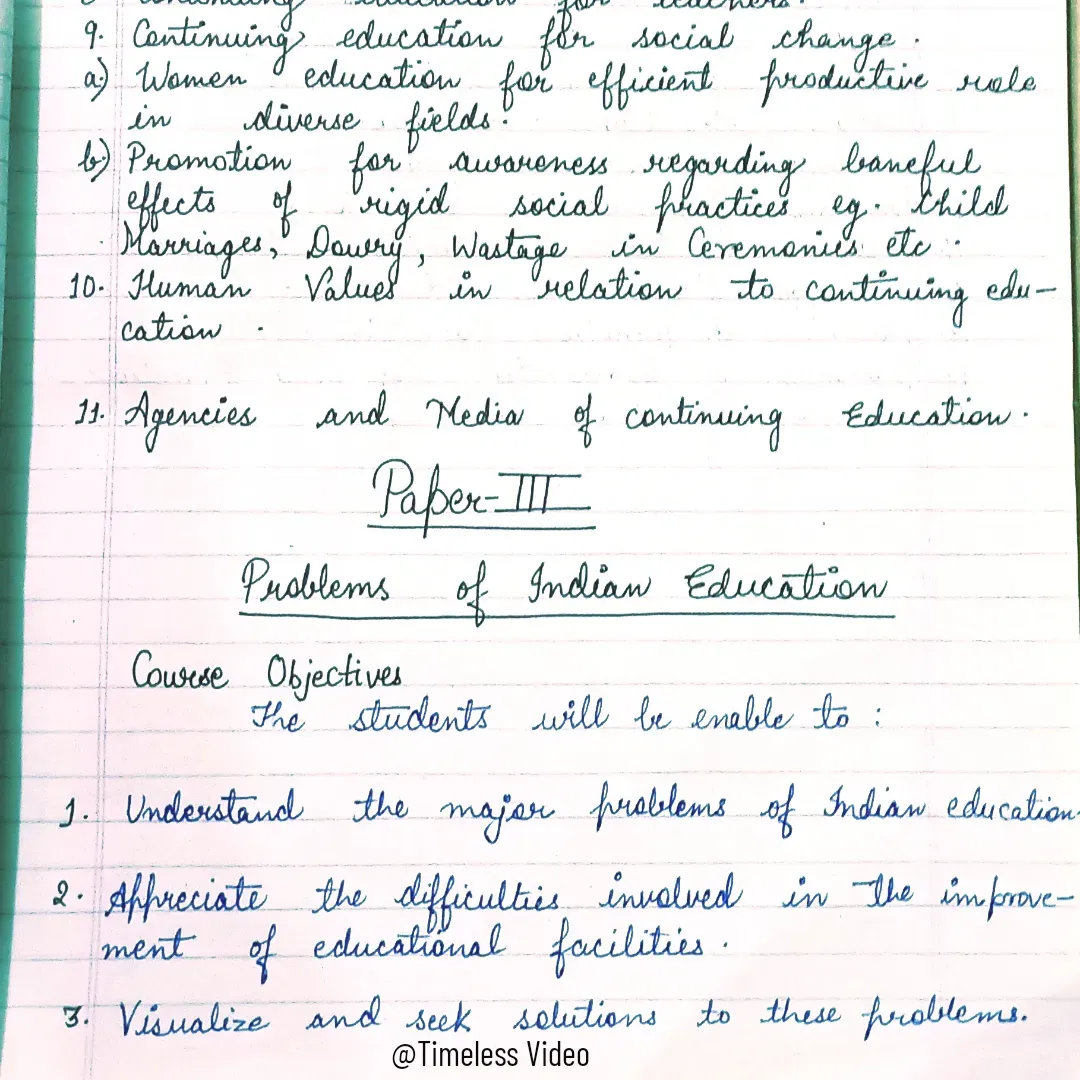 continuing education for teachers.
9. Continuing education for social change.
a) Women education for efficient productive role
in diverse fields.
b) Promotion for awareness regarding baneful
effects of rigid social practices eg. Child
Marriages, Dowry, Wastage in Ceremonies etc.
10. Human Values in relation to continuing edu-
cation.
11. Agencies and Media of continuing Education.
Paper-III
Problems of Indian Education
Course Objectives
The students will be enable to :
1. Understand the major problems of Indian education.
2. Appreciate the difficulties involved in the improve-
ment of educational facilities.
3. Visualize and seek solutions to these problems.
@Timeless Video